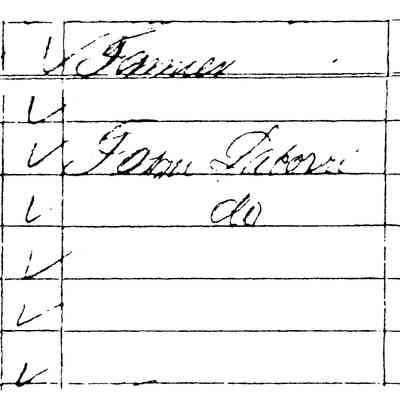 Farmer
Farm Laborer
do